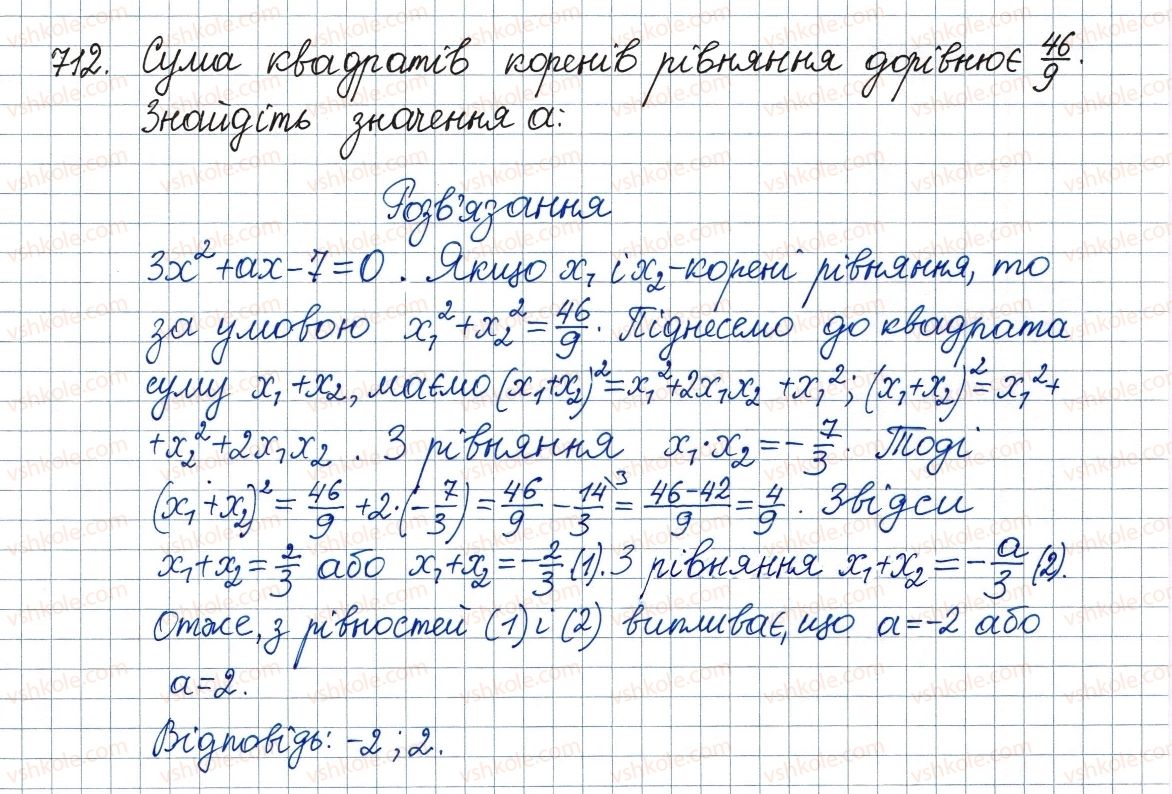 712. Сума квадратів коренів рівняння дорівнює 46/9.
Знайдіть значення a:
Розв'язання
3x² + ax - 7 = 0. Якщо x₁ і x₂ - корені рівняння, то
за умовою x₁² + x₂² = 46/9. Піднесемо до квадрата
суму x₁ + x₂, маємо (x₁+x₂)² = x₁² + 2x₁x₂ + x₁²; (x₁+x₂)² = x₁² +
+ x₂² + 2x₁x₂. З рівняння x₁·x₂ = -7/3. Тоді
(x₁+x₂)² = 46/9 + 2·(-7/3) = 46/9 - 14/3 ⁾³ = 46-42/9 = 4/9. Звідси
x₁+x₂ = 2/3 або x₁+x₂ = -2/3 (1). З рівняння x₁+x₂ = -a/3 (2).
Отже, з рівностей (1) і (2) випливає, що a = -2 або
a = 2.
Відповідь: -2; 2.